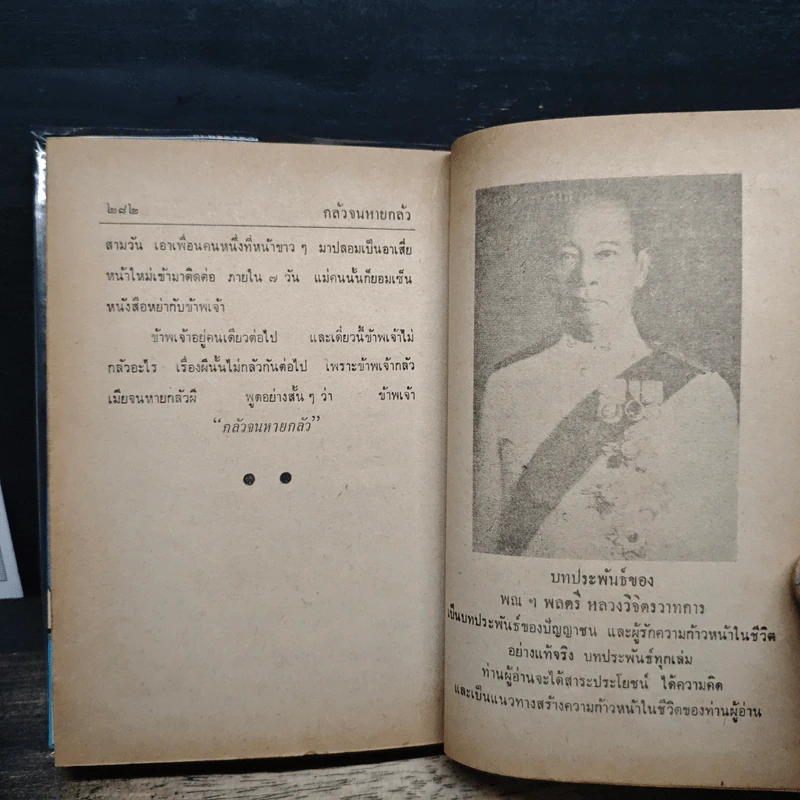 ๒๘๒ กลัวจนหายกลัว
สามวัน เอาเพื่อนคนหนึ่งที่หน้าขาว ๆ มาปลอมเป็นอาเสี่ย
หน้าใหม่เข้ามาติดต่อ ภายใน ๗ วัน แม่คนนั้นก็ยอมเซ็น
หนังสือหย่ากับข้าพเจ้า
ข้าพเจ้าอยู่คนเดียวต่อไป และเดี๋ยวนี้ข้าพเจ้าไม่
กลัวอะไร เรื่องผีนั้นไม่กลัวกันต่อไป เพราะข้าพเจ้ากลัว
เมียจนหายกลัวผี พูดอย่างสั้น ๆ ว่า ข้าพเจ้า
“กลัวจนหายกลัว”
บทประพันธ์ของ
พณ ฯ พลตรี หลวงวิจิตรวาทการ
เป็นบทประพันธ์ของปัญญาชน และผู้รักความก้าวหน้าในชีวิต
อย่างแท้จริง บทประพันธ์ทุกเล่ม
ท่านผู้อ่านจะได้สาระประโยชน์ ได้ความคิด
และเป็นแนวทางสร้างความก้าวหน้าในชีวิตของท่านผู้อ่าน